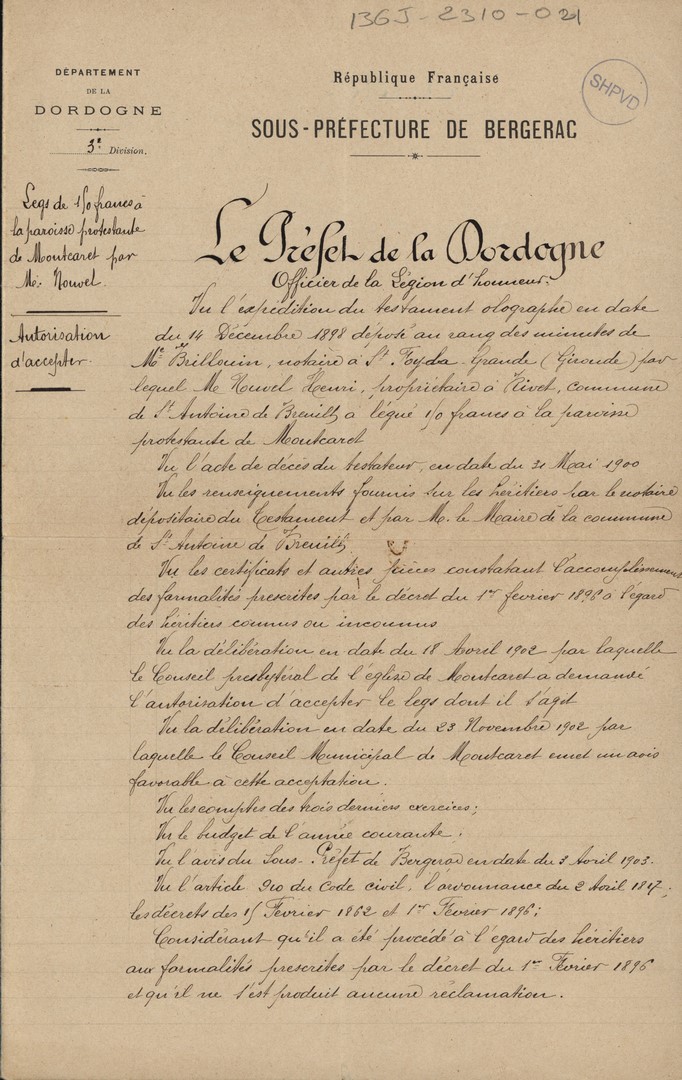 136J-2310-021
DÉPARTEMENT
DE LA
DORDOGNE
3e Division.
République Française
SOUS-PRÉFECTURE DE BERGERAC
SHPVD
Legs de 150 francs à
la paroisse protestante
de Montcaret par
M. Nouvel
Autorisation
d'accepter.
Le Préfet de la Dordogne
Officier de la Légion d'honneur.
Vu l'expédition du testament olographe en date
du 14 Décembre 1898 déposé au rang des minutes de
Me Brillouin, notaire à St Foy la Grande (Gironde) par
lequel M Nouvel Henri, propriétaire à Rivet, commune
de St Antoine de Breuilh a légué 150 francs à la paroisse
protestante de Montcaret
Vu l'acte de décès du testateur, en date du 21 Mai 1900
Vu les renseignements fournis sur les héritiers par le notaire
dépositaire du testament et par M. le Maire de la commune
de St Antoine de Breuilh
Vu les certificats et autres pièces constatant l'accomplissement
des formalités prescrites par le décret du 1er février 1896 à l'égard
des héritiers connus ou inconnus
Vu la délibération en date du 18 Avril 1902 par laquelle
le Conseil presbytéral de l'église de Montcaret a demandé
l'autorisation d'accepter le legs dont il s'agit
Vu la délibération en date du 23 Novembre 1902 par
laquelle le Conseil Municipal de Montcaret émet un avis
favorable à cette acceptation.
Vu les comptes des trois derniers exercices;
Vu le budget de l'année courante;
Vu l'avis du Sous-Préfet de Bergerac en date du 3 Avril 1903.
Vu l'article 910 du Code civil, l'ordonnance du 2 Avril 1817;
les décrets des 15 Février 1862 et 1er Février 1896;
Considérant qu'il a été procédé à l'égard des héritiers
aux formalités prescrites par le décret du 1er Février 1896
et qu'il ne s'est produit aucune réclamation.